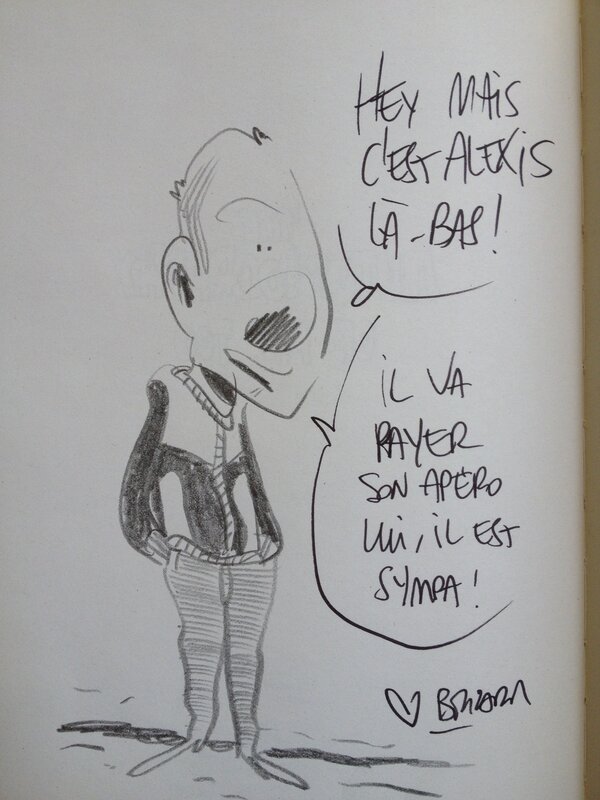 HEY MAIS
C'EST ALEXIS
LÀ-BAS!
iL VA
PAYER
SON APÉRO
LUi, iL EST
SYMPA!